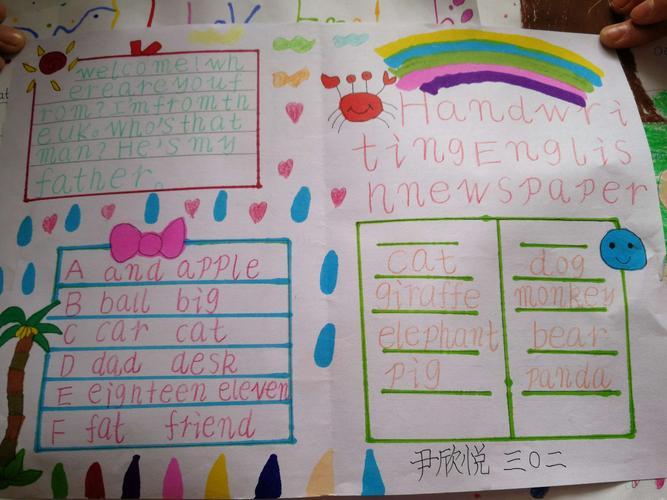 welcome!wh
ere are you f
rom? I'm from th
e uk。Who's that
man? He's my
father。
Handwri
ting Englis
hnewspaper
A and apple
B ball big
C car cat
D dad desk
E eighteen eleven
F fat friend
cat
giraffe
elephant
pig
dog
monkey
bear
panda
尹欣悦 三〇二